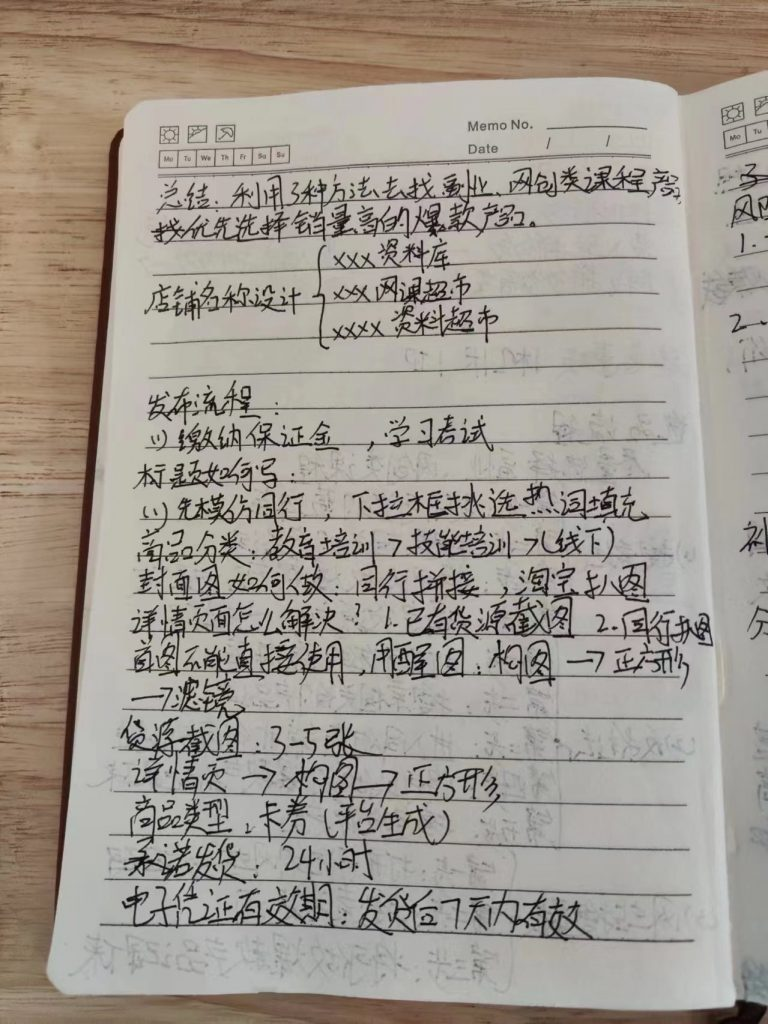 Memo No.
Date / /
Mo Tu We Th Fr Sa Su
总结：利用3种方法去找副业、网创类课程,产品,
找优先选择销量高的爆款产品。
xxx资料库
店铺名称设计 xxx网课超市
xxxx资料超市
发布流程：
(1)缴纳保证金，学习考试
标题如何写：
(1)先模仿同行，下拉框挑选热词填充
商品分类：教育培训>技能培训>(线下)
封面图如何做：同行拼接，淘宝扒图
详情页面怎么解决？1.已有货源截图 2.同行扒图
首图不能直接使用，用醒图：构图→正方形
→滤镜
货源截图：3-5张
详情页→构图→正方形
商品类型：卡券(平台生成)
承诺发货：24小时
电子凭证有效期：发货后7天内有效
Mo Tu
风
1.
2.
补
分